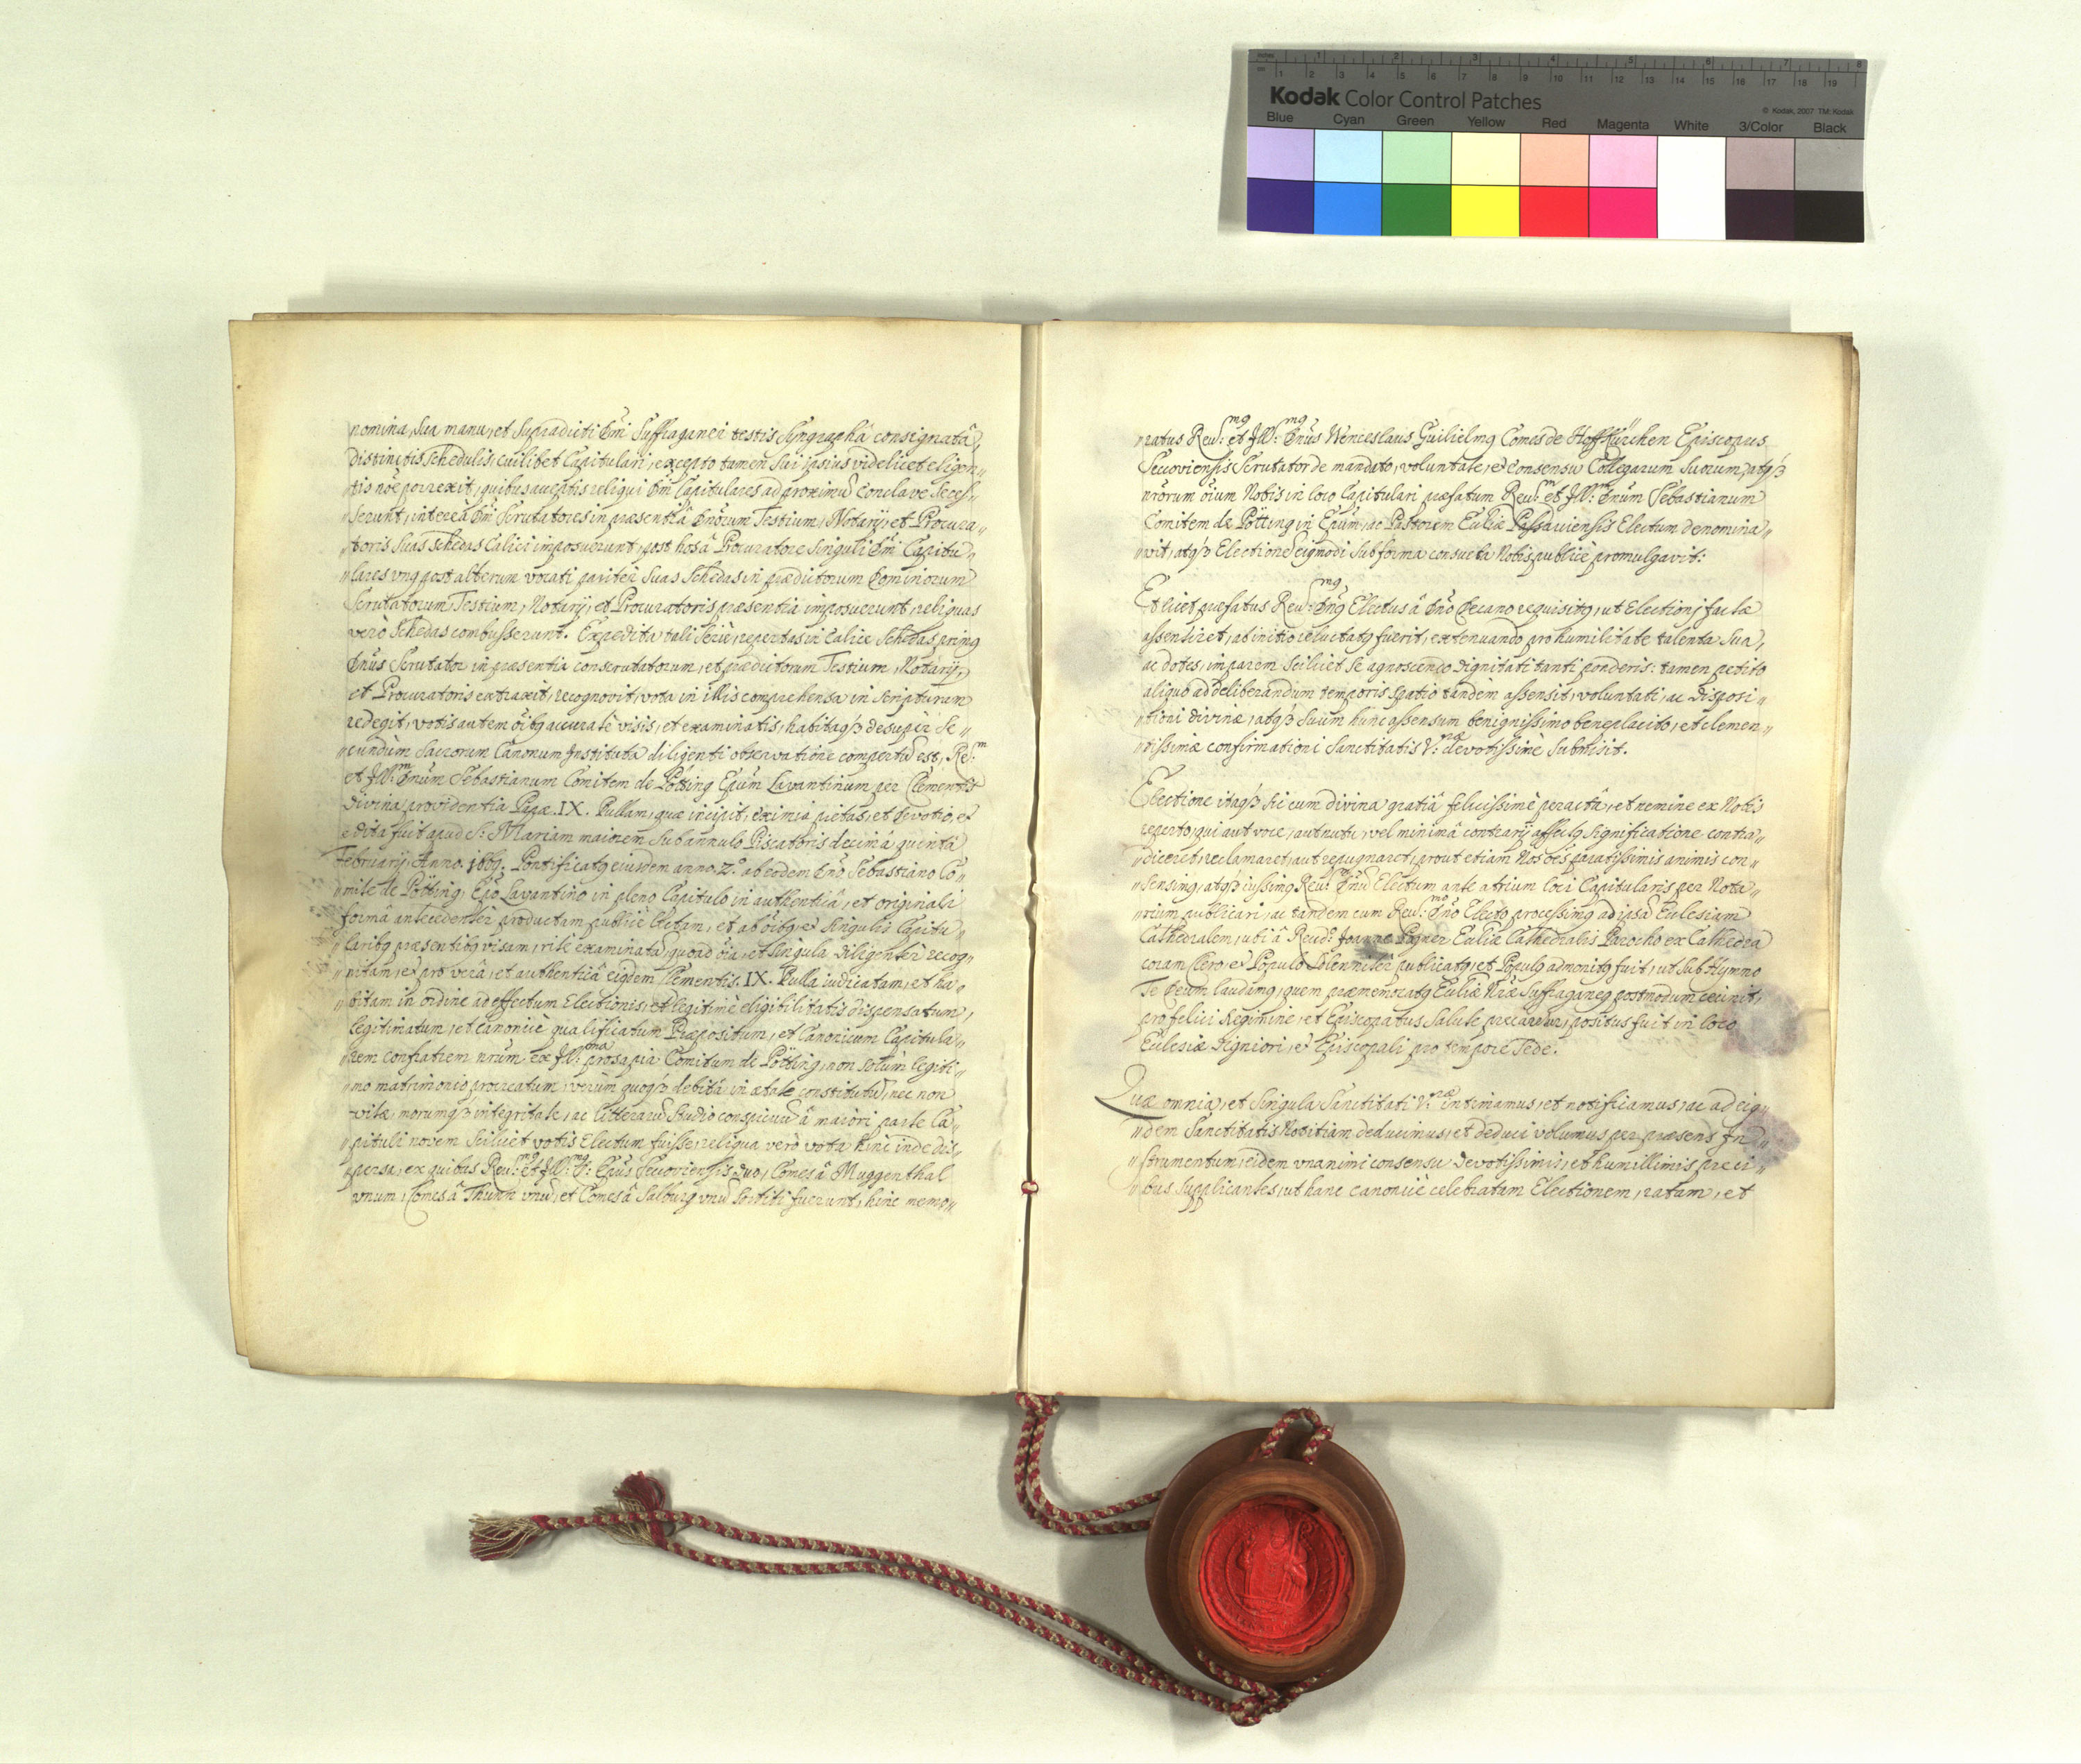 inches 1 2 3 4 5 6 7 8
cm 1 2 3 4 5 6 7 8 9 10 11 12 13 14 15 16 17 18 19
Kodak Color Control Patches
© Kodak, 2007 TM: Kodak
Blue Cyan Green Yellow Red Magenta White 3/Color Black
nomina, sua manu, et supradicti Dni Suffraganei testis Syngraphâ consignatâ,
distinctis schedulis, cuilibet Capitulari, excepto tamen sui ipsius videlicet eligen„
„tis nõe porrexit, quibus acceptis reliqui Dni Capitulares ad proximũ Conclave Seces„
„serunt, intereà Dni Scrutatores in præsentiâ Dnorum Testium, Notarij, et Procura„
„toris suas schedas Calici imposuerunt, post hos â Procuratore singuli Dni Capitu„
„lares vnq post alterum vocati pariter suas Schedas in prædictorum Dominorum
Scrutatorum, Testium, Notarij, et Procuratoris præsentia imposuerunt, reliquas
verò Schedas combusserunt. Expedita tali Serie, repertas in Calice Schedas primq
Dnus Scrutator in præsentia conscrutatorum, et prædictorum Testium, Notarij,
et Procuratoris extraxit, recognovit, vota in illis comprehensa in Scripturam
redegit, votis autem oibq accuratè visis, et examinatis, habitaqȝ desuper se„
„cundùm Sacrorum Canonum Instituta diligenti observatione compertũ est, Reᵐ:
et Jll:ᵐ Dnum Sebastianum Comitem de Pötting Epum Lavantinum per Clementis
divina providentia Papæ. IX. Bullam, quæ incipit, eximia pietas, et devotio, et
edita fuit apud S: Mariam maiorem sub annulo Piscatoris decimâ quintâ
Februarij, Anno. 1669. Pontificatq eiusdem anno. 2.º ab eodem Dno Sebastiano Co„
„mite de Pötting, Epo Lavantino in pleno Capitulo in authenticâ, et originali
formâ antecedenter productam publicè lectam, et ab oibq, et singulis Capitu„
„laribq præsentibq visam, rite examinatã, quoad oia, et singula diligenter recog„
„nitam, et pro verâ, et authenticâ eiqdem Clementis. IX. Bulla iudicatam, et ha„
„bitam in ordine ad effectum Electionis, et legitimè eligibilitatis dispensatum,
legitimatum, et canonicè qualificatum Præpositum, et Canonicum Capitula„
„rem confratrem nrum ex Jll:ᵐᵃ prosapia Comitum de Pötting, non solùm legiti„
„mo matrimonio procreatum, verùm quoqȝ debitâ in ætate constitutũ, nec non
vitæ, morumqȝ integritate, ac litterarũ Studio conspicuũ â maiori parte Ca„
„pituli novem scilicet votis Electum fuisse, reliqua verò vota hinc inde dis„
„persa, ex quibus Rev:ᵐq et Jll:ᵐq D: Epus Secoviensis duo, Comes â Muggenthal
vnum, Comes â Thunn vnũ, et Comes â Salburg vnũ sortiti fuerunt, hinc memo„
„ratus Rev:ᵐq et Jll:ᵐq Dnus Wenceslaus Guilielmq Comes de Hoffkürchen Episcopus
Secoviensis Scrutator de mandato, voluntate, et consensu Collegarum suorum, atqȝ
nrorum oium Nobis in loco Capitulari præfatum Rev:ᵐ et Jll:ᵐ Dnum Sebastianum
Comitem de Pötting in Epum, ac Pastorem Eccliæ Passaviensis Electum denomina„
„vit, atqȝ Electionẽ eiqmodi sub forma consueta Nobis publice promulgavit:
Et licet præfatus Rev:ᵐq Dnq Electus â Dno Decano requisitq, ut Electioni factæ
assentiret, ab initio reluctatq fuerit, extenuando pro humilitate talenta sua,
ac dotes, imparem scilicet se agnoscendo dignitati tanti ponderis: tamen petito
aliquo ad deliberandum temporis spatio tandèm assensit, voluntati, ac disposi„
„tioni divinæ, atqȝ suum hunc assensum benignissimo beneplacito, et clemen„
„tissimæ confirmationi Sanctitatis V:ræ devotissimè submisit.
Electione itaqȝ sic cum divina gratiâ felicissimè peractâ, et nemine ex Nobis
reperto, qui aut voce, aut nutu, vel minimâ contrarij affectq significatione contra„
„diceret, reclamaret, aut repugnaret, prout etiam Nos oes paratissimis animis con„
„sensimq, atqȝ iussimq Rev:ᵐ Dnũ Electum ante atrium loci Capitularis per Nota„
„rium publicari, ac tandem cum Rev:ᵐᵒ Dno Electo processimq ad ipsã Ecclesiam
Cathedralem, ubi â Reudº: Joanne Pagner Eccliæ Cathedralis Parocho ex Cathedra
coram Clero, et Populo solemniter publicatq, et Populq admonitq fuit, ut sub Hymno
Te Deum laudamq, quem præmemoratq Eccliæ Nræ Suffraganeq postmodum cecinit,
pro felici Regimine, et Episcopatus Salute precaretur, positus fuit in loco
Ecclesiæ digniori, et Episcopali pro tempore Sede.
Quæ omnia, et singula Sanctitati V:ræ intimamus, et notificamus, ac ad eiq„
„dem Sanctitatis Notitiam deducimus, et deduci volumus per præsens In„
„strumentum, eidem vnanimi consensu devotissimis, et humillimis preci„
„bus supplicantes, ut hanc canonicè celebratam Electionem, ratam, et